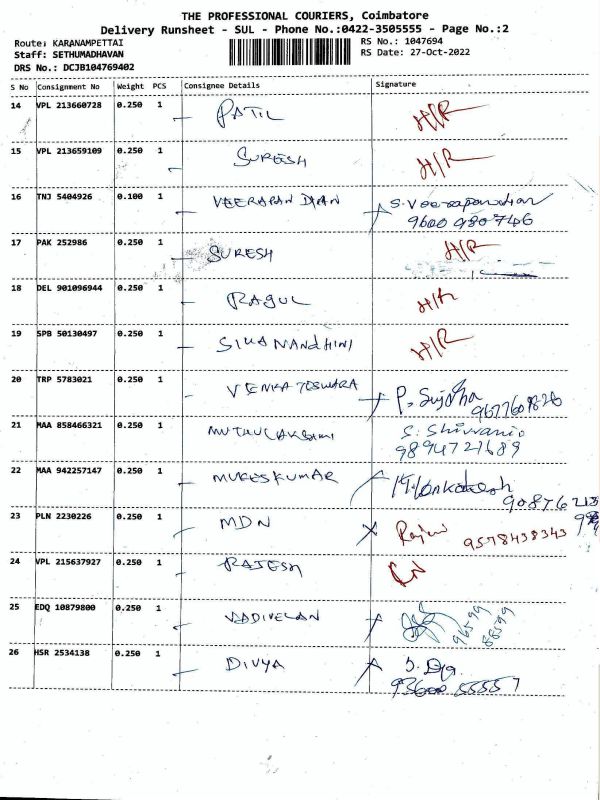 THE PROFESSIONAL COURIERS, Coimbatore
Delivery Runsheet - SUL - Phone No.:0422-3505555 - Page No.:2
Route: KARANAMPETTAI
RS No.: 1047694
Staff: SETHUMADHAVAN
RS Date: 27-Oct-2022
DRS No.: DCJB104769402
S No Consignment No Weight PCS Consignee Details Signature
14 VPL 213660728 0.250 1 PATIL H/R
15 VPL 213659109 0.250 1 SURESH H/R
16 TNJ 5404926 0.100 1 VEERAPANDIAN S. Veerapandian
9600 9807446
17 PAK 252986 0.250 1 SURESH H/R
18 DEL 901096944 0.250 1 RAGUL H/R
19 SPB 50130497 0.250 1 SIVANANDHINI H/R
20 TRP 5783021 0.250 1 VENKATESWARA P. Sujatha
21 MAA 858466321 0.250 1 MUTHULAKSHMI
9894721689
22 MAA 942257147 0.250 1 MUKESKUMAR
23 PLN 2230226 0.250 1 MDN
9578438343
24 VPL 215637927 0.250 1 RAJESH
25 EDQ 10879800 0.250 1 VADIVELAN
96599
88599
26 HSR 2534138 0.250 1 DIVYA